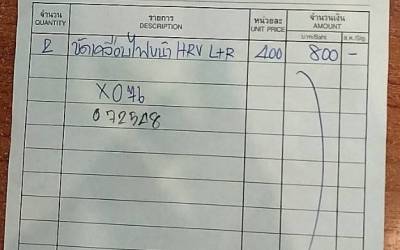 จำนวน รายการ หน่วยละ จำนวนเงิน
QUANTITY DESCRIPTION UNIT PRICE AMOUNT
บาท/Baht ส.ต./Stg.
2 ขัดเคลือบไฟหน้า HRV L+R 400 800 -
X076
072548